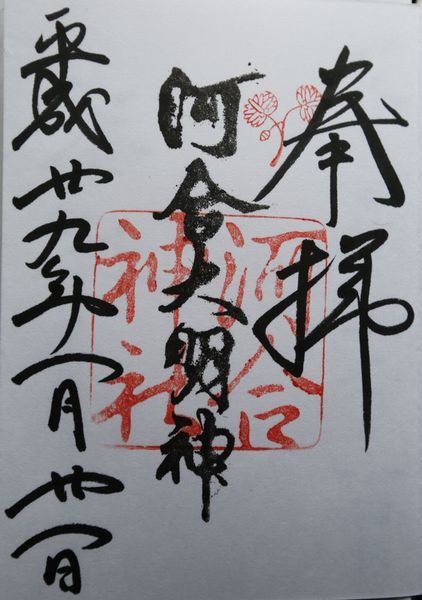 奉拝
河合大明神
河合
神社
平成廿九年一月廿一日